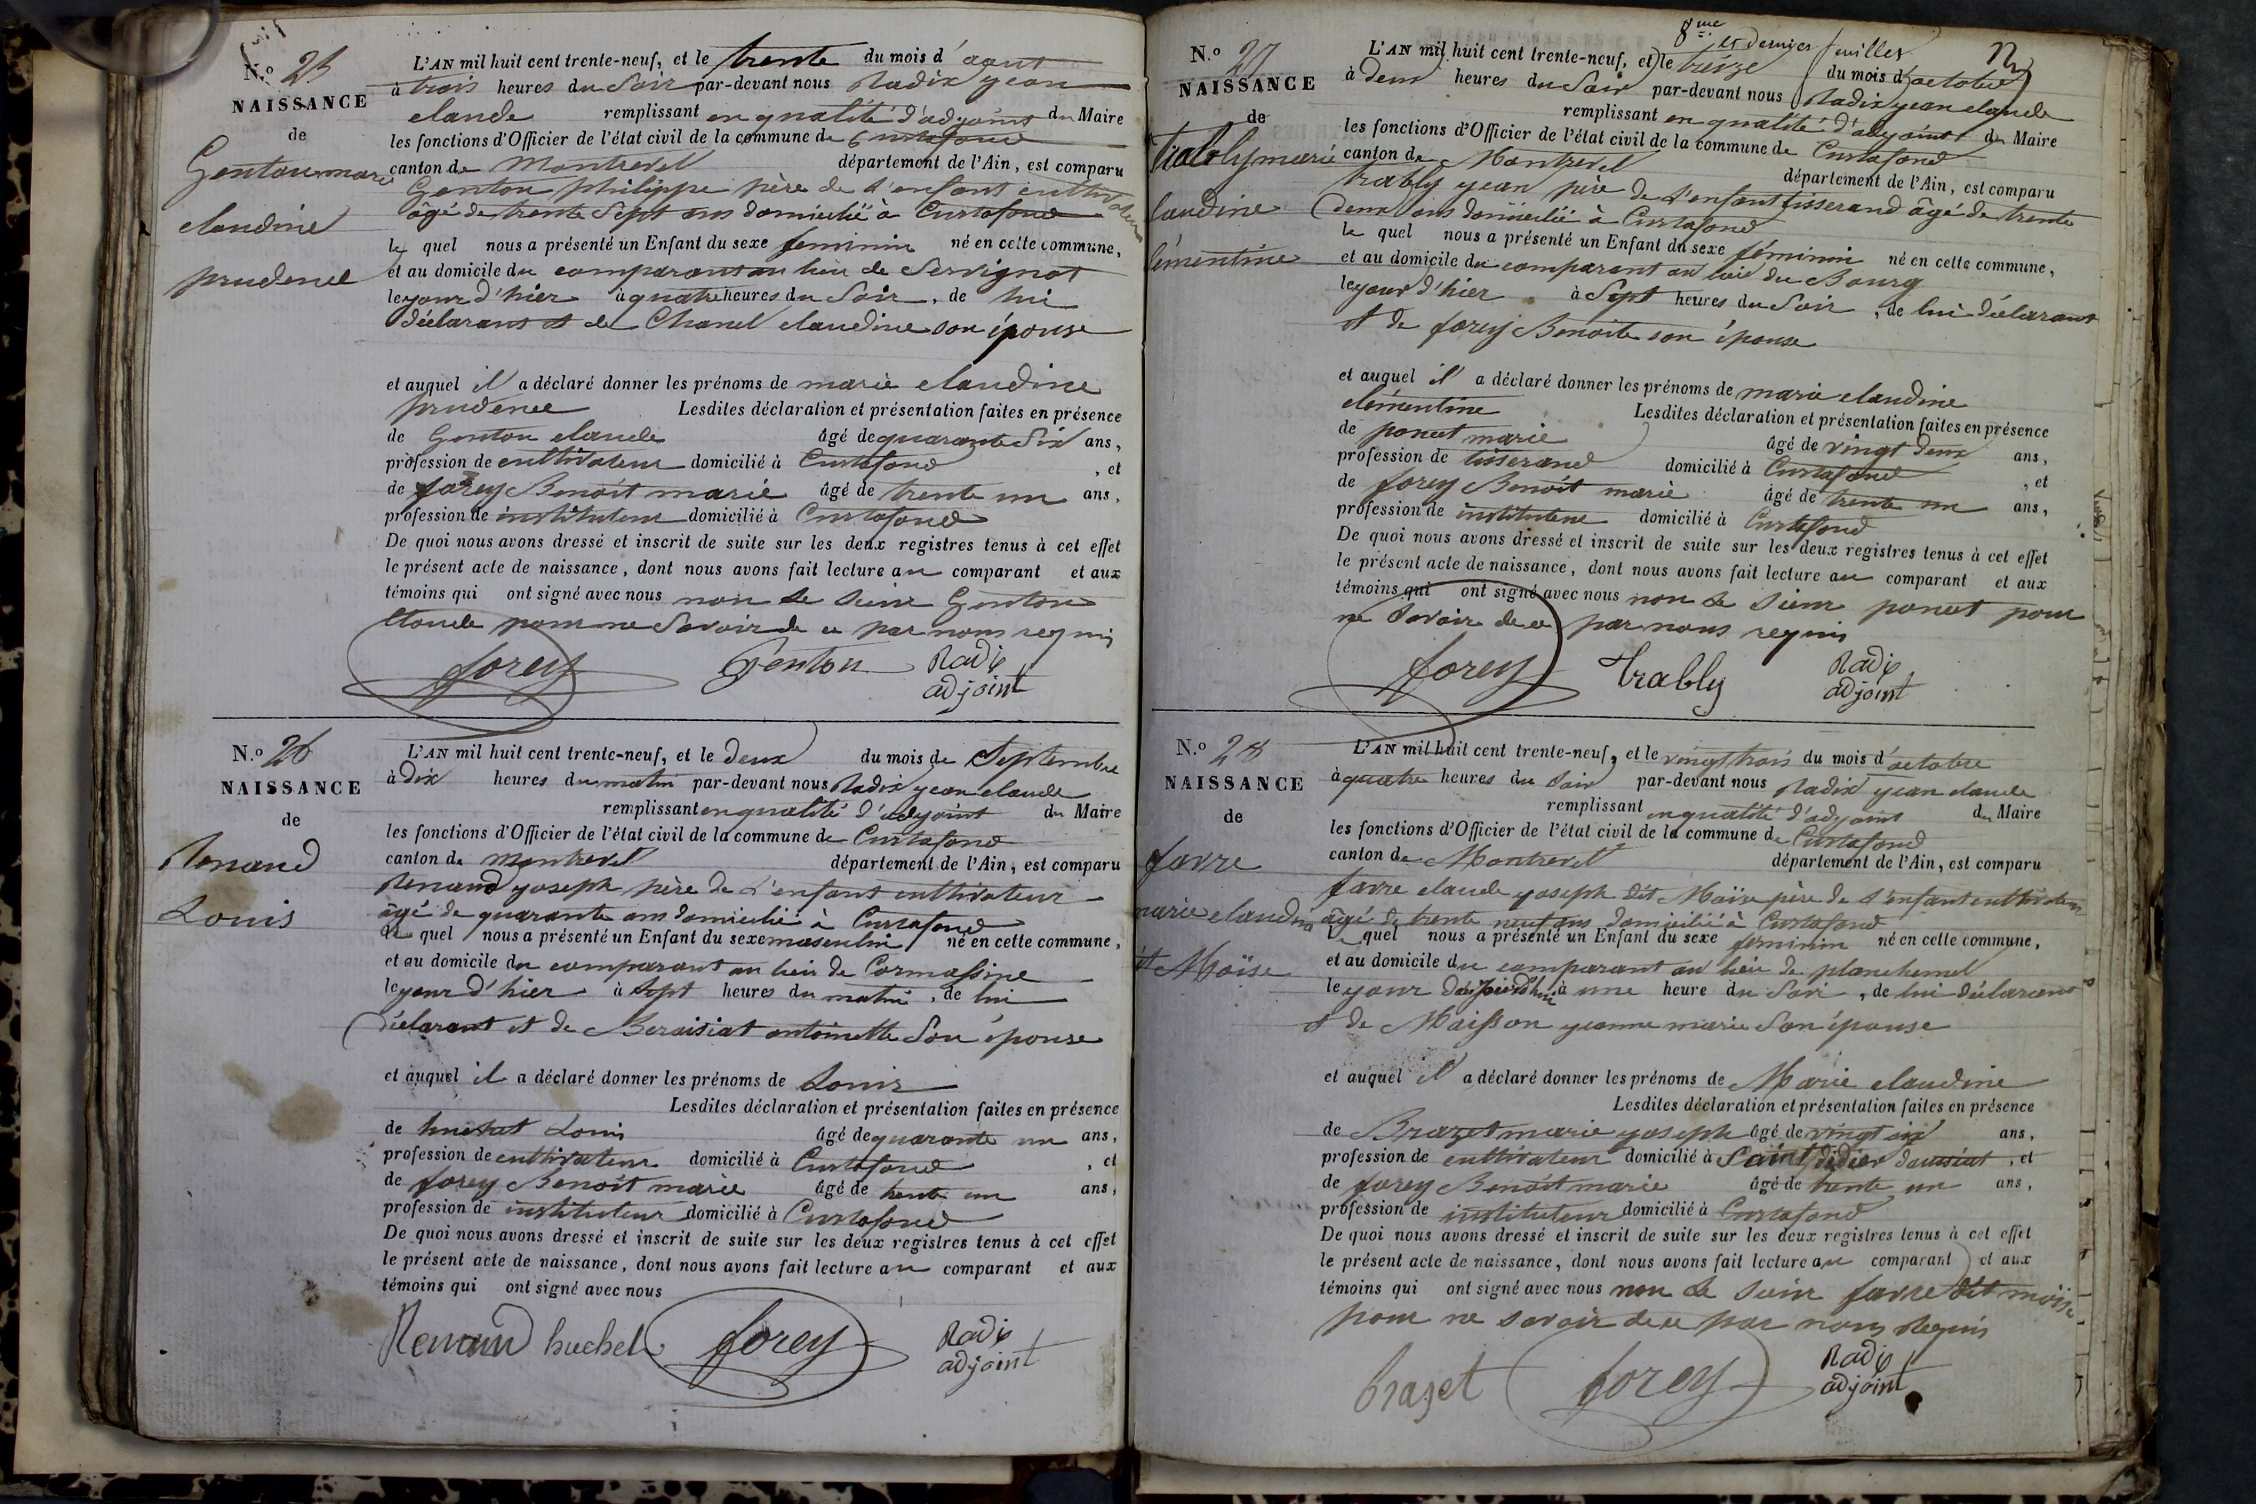 N.o 25
NAISSANCE
de
Genton marie
claudine
prudence
L'AN mil huit cent trente-neuf, et le trente du mois d'août
à trois heures du Soir par-devant nous Radix jean
claude remplissant en qualité d'adjoint du Maire
les fonctions d'Officier de l'état civil de la commune de Curtafond
canton de Montrevel département de l'Ain, est comparu
Genton philippe père de l'enfant cultivateur
âgé de trente Sept ans domicilié à Curtafond
le quel nous a présenté un Enfant du sexe féminin né en cette commune,
et au domicile du comparant au lieu de Servignat
le jour d'hier à quatre heures du Soir, de lui
déclarant et de Chanel claudine son épouse
et auquel il a déclaré donner les prénoms de marie claudine
prudence Lesdites déclaration et présentation faites en présence
de Genton claude âgé de quarante Six ans,
profession de cultivateur domicilié à Curtafond, et
de forey Benoît marie âgé de trente un ans,
profession de instituteur domicilié à Curtafond
De quoi nous avons dressé et inscrit de suite sur les deux registres tenus à cet effet
le présent acte de naissance, dont nous avons fait lecture au comparant et aux
témoins qui ont signé avec nous non le sieur Genton
Claude pour ne Savoir de ce par nous requis
forey Genton Radix
adjoint
N.o 26
NAISSANCE
de
Renaud
Louis
L'AN mil huit cent trente-neuf, et le deux du mois de Septembre
à dix heures du matin par-devant nous Radix jean claude
remplissant en qualité d'adjoint du Maire
les fonctions d'Officier de l'état civil de la commune de Curtafond
canton de montrevel département de l'Ain, est comparu
Renaud joseph père de l'enfant cultivateur
âgé de quarante ans domicilié à Curtafond
le quel nous a présenté un Enfant du sexe masculin né en cette commune,
et au domicile du comparant au lieu de Cormassine
le jour d'hier à Sept heures du matin, de lui
déclarant et de Beraisiat antoinette Son épouse
et auquel il a déclaré donner les prénoms de Louis
Lesdites déclaration et présentation faites en présence
de Louis âgé de quarante un ans,
profession de cultivateur domicilié à Curtafond, et
de forey Benoît marie âgé de trente un ans,
profession de instituteur domicilié à Curtafond
De quoi nous avons dressé et inscrit de suite sur les deux registres tenus à cet effet
le présent acte de naissance, dont nous avons fait lecture au comparant et aux
témoins qui ont signé avec nous
Renaud huchet forey Radix
adjoint
8me et dernier feuillet
N.o 27
NAISSANCE
de
marie
claudine
clémentine
L'AN mil huit cent trente-neuf, et le treize du mois d'octobre
à deux heures du Soir par-devant nous Radix jean claude
remplissant en qualité d'adjoint du Maire
les fonctions d'Officier de l'état civil de la commune de Curtafond
canton de Montrevel département de l'Ain, est comparu
trably jean père de l'enfant tisserand âgé de trente
deux ans domicilié à Curtafond
le quel nous a présenté un Enfant du sexe féminin né en cette commune,
et au domicile du comparant au lieu du Bourg
le jour d'hier à Sept heures du Soir, de lui déclarant
et de forey Benoite son épouse
et auquel il a déclaré donner les prénoms de marie claudine
clémentine Lesdites déclaration et présentation faites en présence
de poncet marie âgé de vingt deux ans,
profession de tisserand domicilié à Curtafond, et
de forey Benoît marie âgé de trente un ans,
profession de instituteur domicilié à Curtafond
De quoi nous avons dressé et inscrit de suite sur les deux registres tenus à cet effet
le présent acte de naissance, dont nous avons fait lecture au comparant et aux
témoins qui ont signé avec nous non le sieur poncet pour
ne Savoir de ce par nous requis
forey trably Radix
adjoint
N.o 28
NAISSANCE
de
favre
marie claudine
dit Moïse
L'AN mil huit cent trente-neuf, et le vingt trois du mois d'octobre
à quatre heures du Soir par-devant nous Radix jean claude
remplissant en qualité d'adjoint du Maire
les fonctions d'Officier de l'état civil de la commune de Curtafond
canton de Montrevel département de l'Ain, est comparu
favre claude joseph dit Moïse père de l'enfant cultivateur
âgé de trente neuf ans domicilié à Curtafond
le quel nous a présenté un Enfant du sexe féminin né en cette commune,
et au domicile du comparant au lieu de planchemel
le jour d'aujourd'hui à une heure du Soir, de lui déclarant
et de Maisson jeanne marie Son épouse
et auquel il a déclaré donner les prénoms de Marie claudine
Lesdites déclaration et présentation faites en présence
de Brazet marie joseph âgé de vingt six ans,
profession de cultivateur domicilié à Saint didier daussiat, et
de forey Benoît marie âgé de trente un ans,
profession de instituteur domicilié à Curtafond
De quoi nous avons dressé et inscrit de suite sur les deux registres tenus à cet effet
le présent acte de naissance, dont nous avons fait lecture au comparant et aux
témoins qui ont signé avec nous non le sieur favre dit moïse
pour ne savoir de ce par nous Requis
brazet forey Radix
adjoint